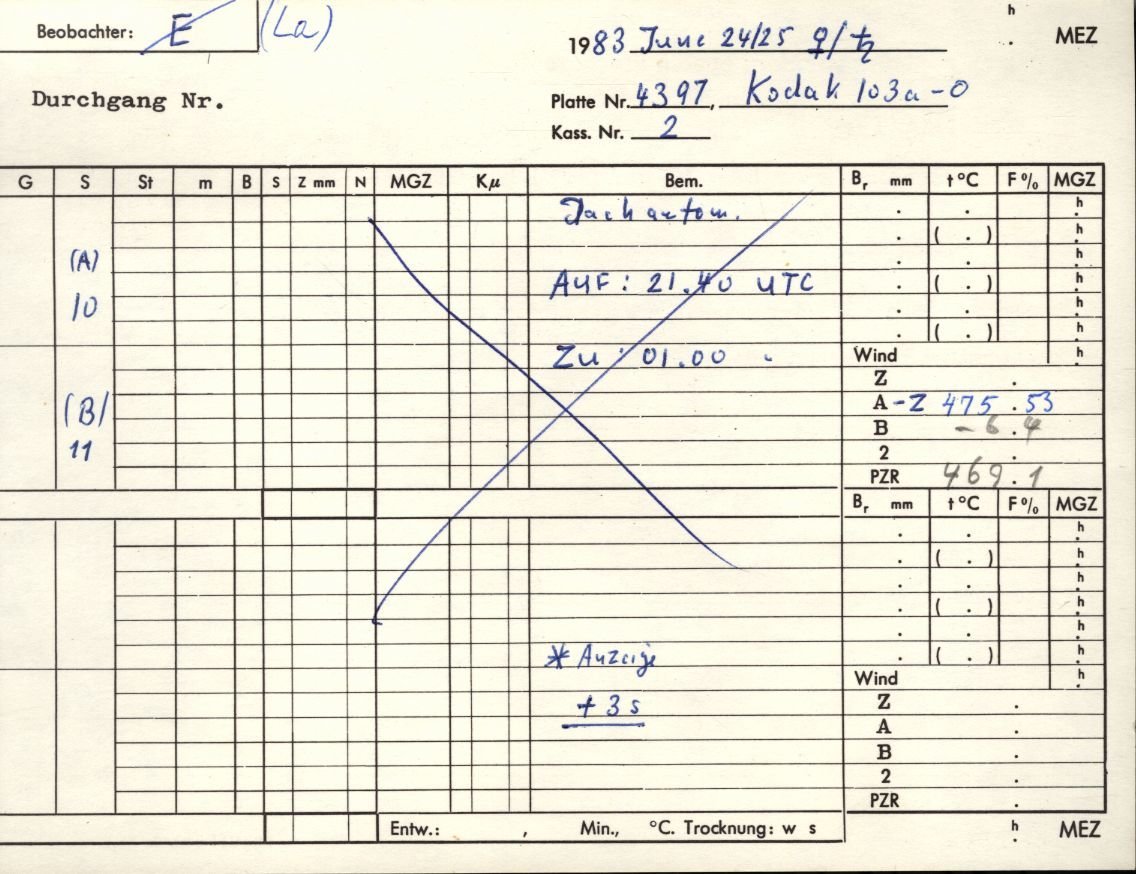 Beobachter: E (La)
h
. MEZ
1983 June 24/25 ♀/♄
Durchgang Nr.
Platte Nr. 4397, Kodak 103a-O
Kass. Nr. 2
G S St m B S Z mm N MGZ Kμ Bem. Br mm t °C F % MGZ
Dach autom. . . h
. ( . ) h
(A) . . h
10 AUF : 21.40 UTC . ( . ) h
. . h
. ( . ) h
Zu : 01.00 " Wind h
Z .
(B) A - Z 475 . 53
B - 6 . 4
11 2 .
PZR 469 . 1
Br mm t °C F % MGZ
. . h
. ( . ) h
. . h
. ( . ) h
. . h
* Anzeige . ( . ) h
Wind h
+ 3 s Z .
A .
B .
2 .
PZR .
Entw.: , Min., °C. Trocknung: w s h
. MEZ